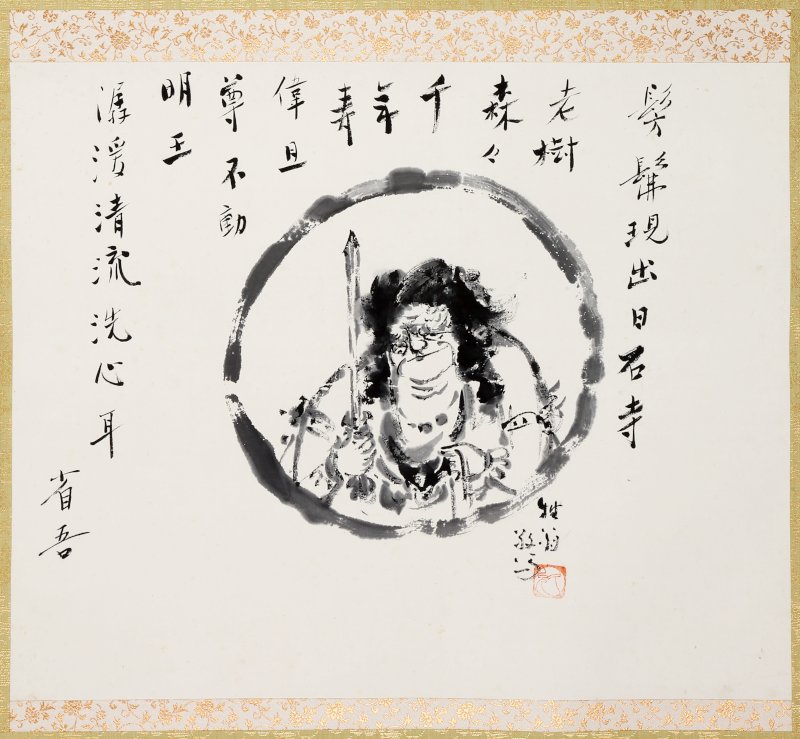 髣髴現出日石寺
老樹
森々
千
年
寿
偉且
尊不動
明王
潺湲清流洗心耳
省吾
敬写